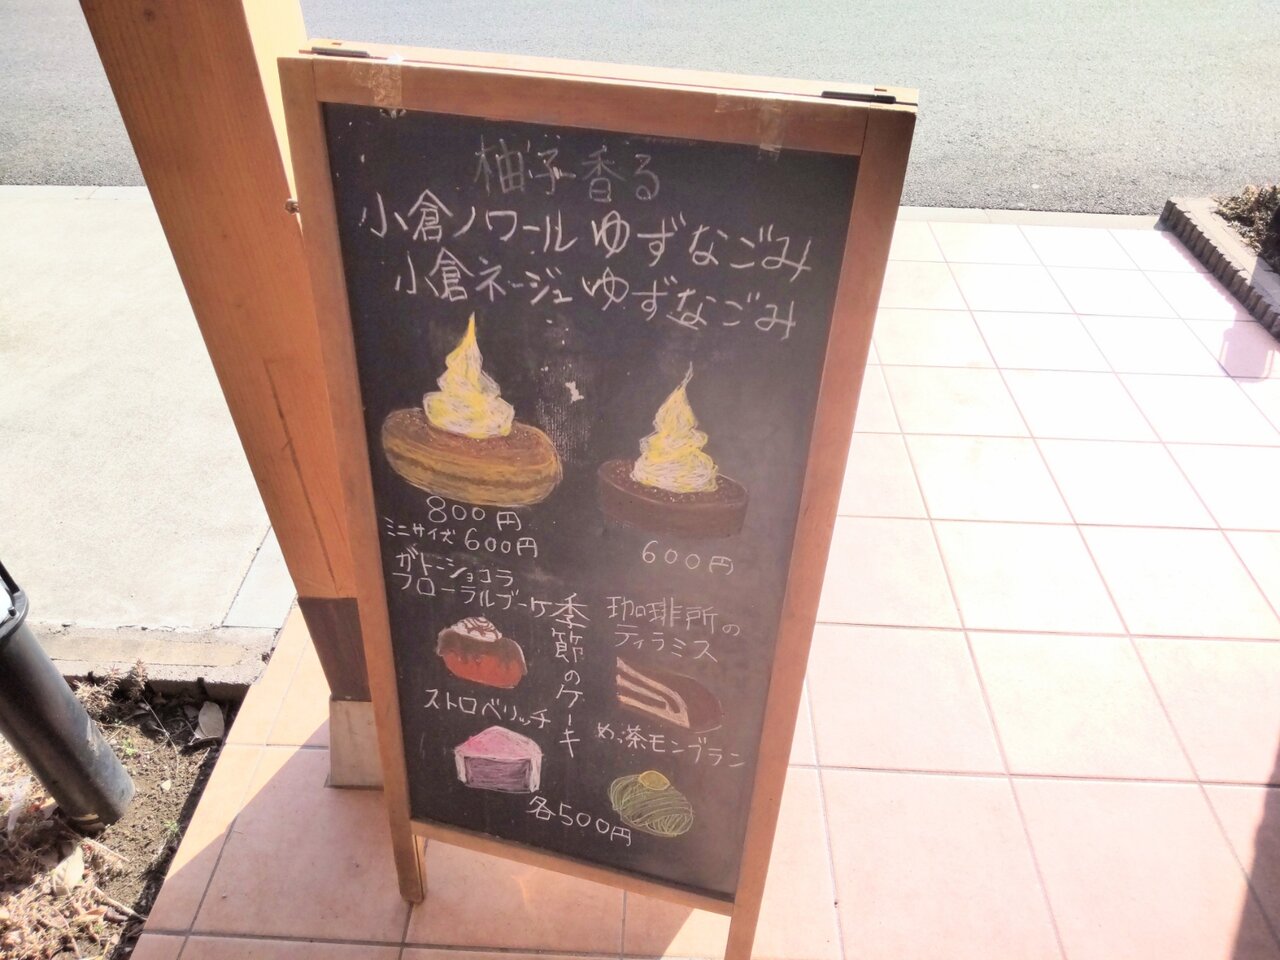 柚子香る
小倉ノワール ゆずなごみ
小倉ネージュ ゆずなごみ
800円
ミニサイズ 600円
600円
ガトーショコラ
フローラルブーケ
季節のケーキ
珈琲所の
ティラミス
ストロベリッチ
めっ茶モンブラン
各500円